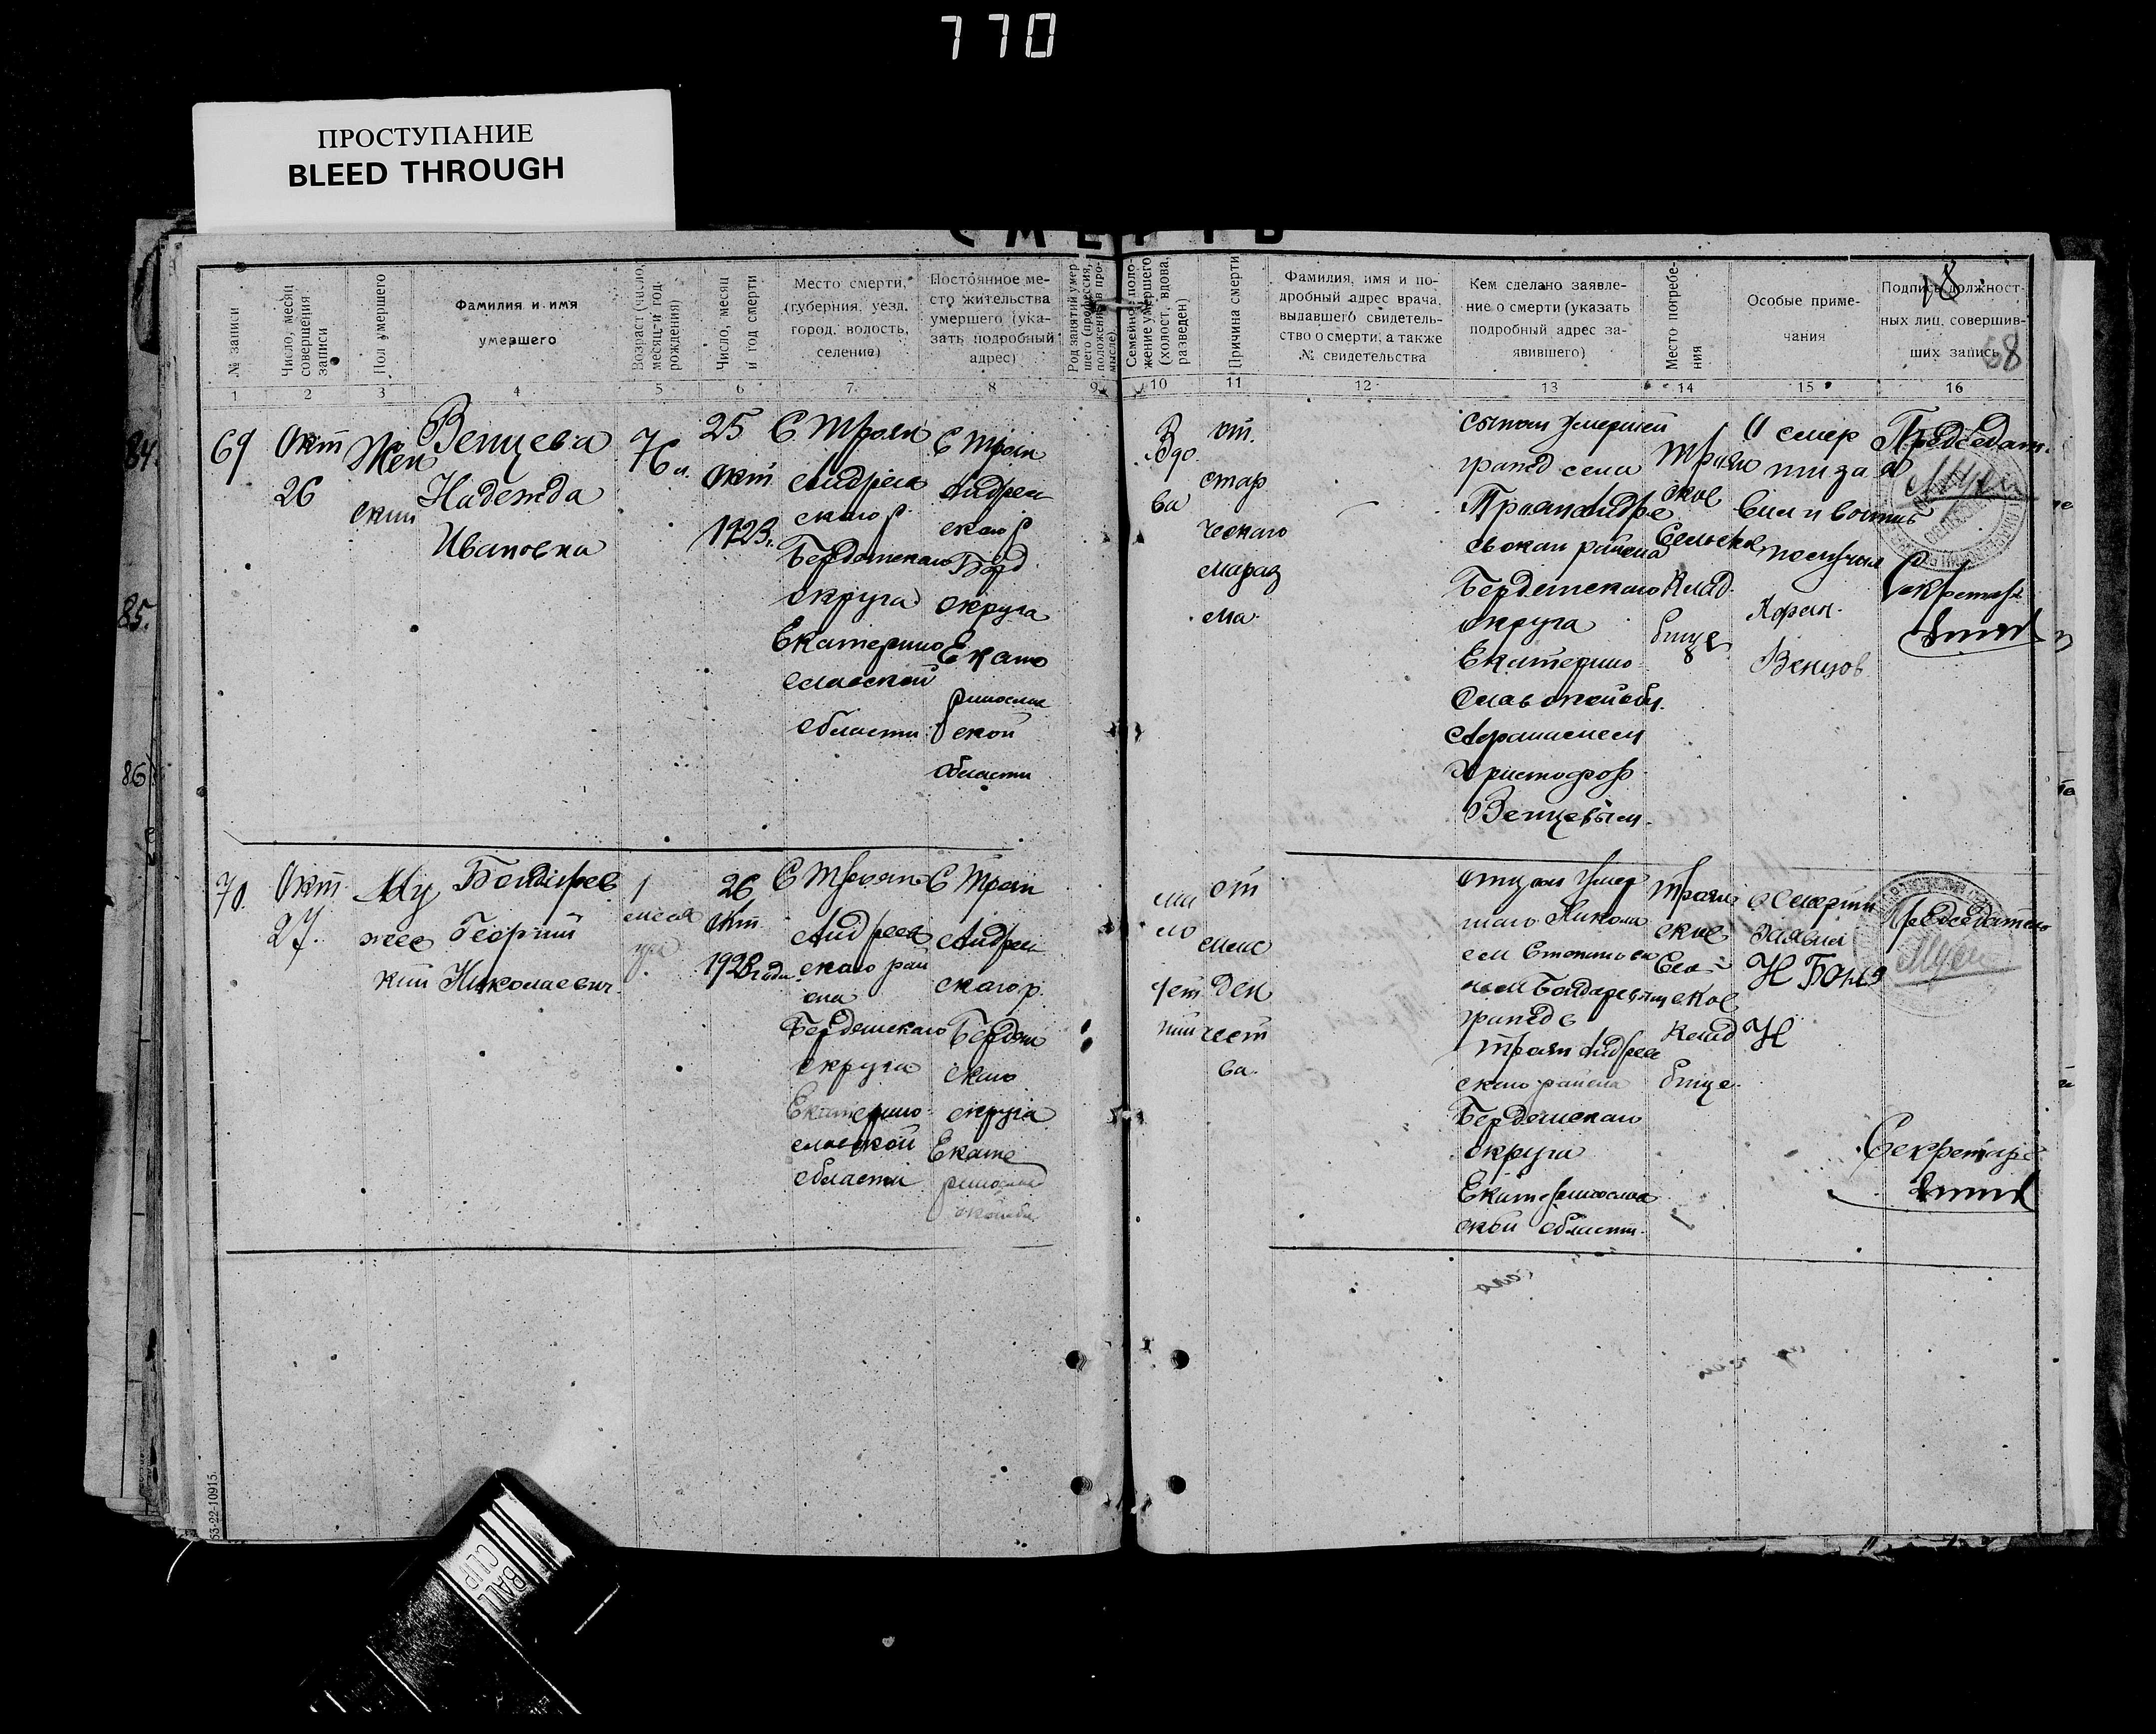 770
ПРОСТУПАНИЕ
BLEED THROUGH
СМЕРТЬ
18
68
№ записи
Число, месяц совершения записи
Пол умершего
Фамилия и имя
умершего
Возраст (число, месяц и год рождения)
Число, месяц и год смерти
Место смерти,
(губерния, уезд,
город, волость,
селение)
Постоянное ме-
сто жительства
умершего (ука-
зать подробный
адрес)
Род занятий умер
шего (профессия,
положение в про-
мысле)
Семейное поло-
жение умершего
(холост, вдова,
разведен)
Причина смерти
Фамилия, имя и по-
дробный адрес врача,
выдавшего свидетель-
ство о смерти, а также
№ свидетельства
Кем сделано заявле-
ние о смерти (указать
подробный адрес за-
явившего)
Место погребе-
ния
Особые приме-
чания
Подпись должност-
ных лиц, совершив-
ших запись
1 2 3 4 5 6 7 8 9 10 11 12 13 14 15 16
84.
85.
86
69
Окт
26
Жен
ский
Венцева
Надежда
Ивановна
76 л.
25
Окт
1923 г.
С Троян
Андреев
скаго р.
Бердянскаго
округа
Екатерино
славской
области
С Троян
Андреев
скаго р
Берд.
округа
Екате
ринослав
ской
области
Вдо
ва
от.
стар
ческаго
мараз
ма.
сыном умершей
гражд села
Бердянскаго
округа
Екатерино
славской обл.
Афанасием
Христофор
Венцевым.
Троян
ское
Сельское
Клад
бище
О смер
ти зая
вил и выпись
получил
Афан.
Венцов
Председат.
Секретарь
70.
Окт
27.
Му
жес
кий
Бондарев
Георгий
Николаевич.
1
меся
ца
26
Окт
1923 года
С Трояно
Андреев
скаго рай
она
Бердянскаго
округа
Екатерино
славской
области
С Троян
Андреев
скаго р.
Бердян
скаго
округа
Екате
ринослав
ской обл.
от
млаг
ден
чест
ва.
отцом умер
шаго Никола
ем
Бондаревым
гражд с
Троян Андреев
скаго района
Бердянскаго
округа
Екатеринослав
ской области.
Троян
ское
Сель
ское
клад
бище.
О смерти
заявил
Н Бон
Председатель
Секретарь
53-22-10915.
BALL
CLIP